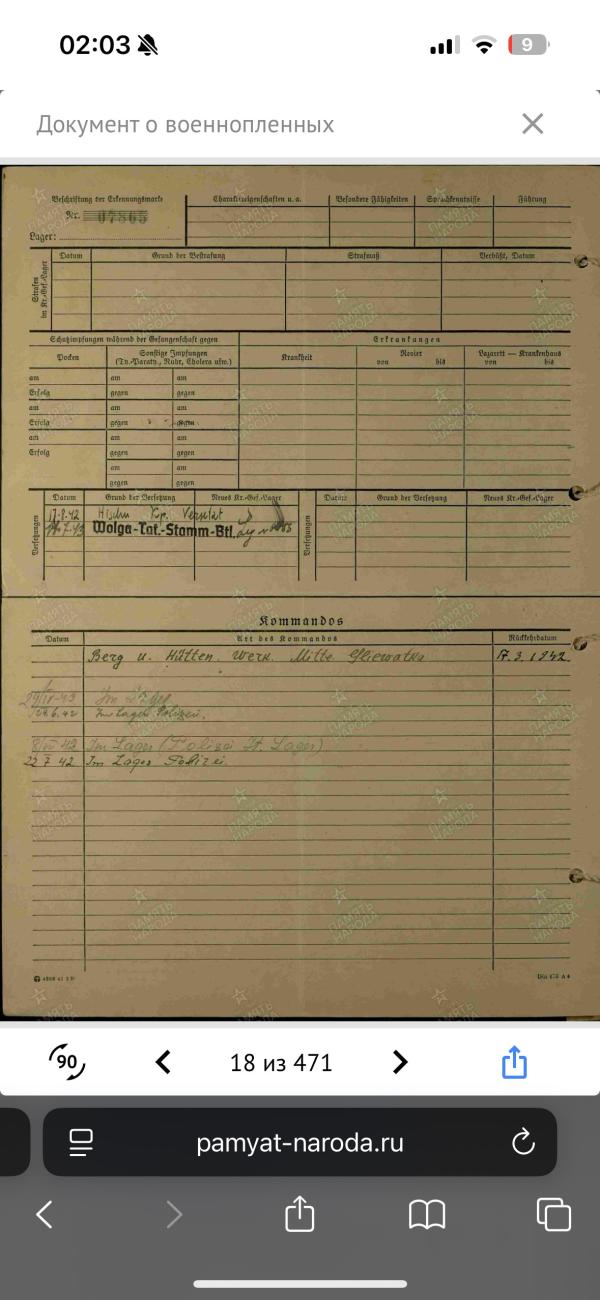 02:03
9
Документ о военнопленных
Beschriftung der Erkennungsmarke
Nr. 07865
Lager:
Charaktereigenschaften u. a.
Besondere Fähigkeiten
Sprachkenntnisse
Führung
Strafen im Kr.-Gef.-Lager
Datum
Grund der Bestrafung
Strafmaß
Verbüßt, Datum
Schutzimpfungen während der Gefangenschaft gegen
Erkrankungen
Pocken
Sonstige Impfungen
(Ty.-Paraty., Ruhr, Cholera usw.)
Krankheit
Revier
von bis
Lazarett — Krankenhaus
von bis
am am am
Erfolg gegen gegen
am am am
Erfolg gegen gegen
am am am
Erfolg gegen gegen
am am
gegen gegen
Versetzungen
Datum Grund der Versetzung Neues Kr.-Gef.-Lager
Versetzungen
Datum Grund der Versetzung Neues Kr.-Gef.-Lager
17.8.42
Wolga-Tat.-Stamm-Btl.
Kommandos
Datum Art des Kommandos Rückkehrdatum
Berg u. Hütten. Werk. Mitte 17.3.1942
Im Lager Polizei.
Im Lager (Polizei St. Lager)
22 7 42 Im Lager Polizei.
ПАМЯТЬ НАРОДА
90
18 из 471
pamyat-naroda.ru